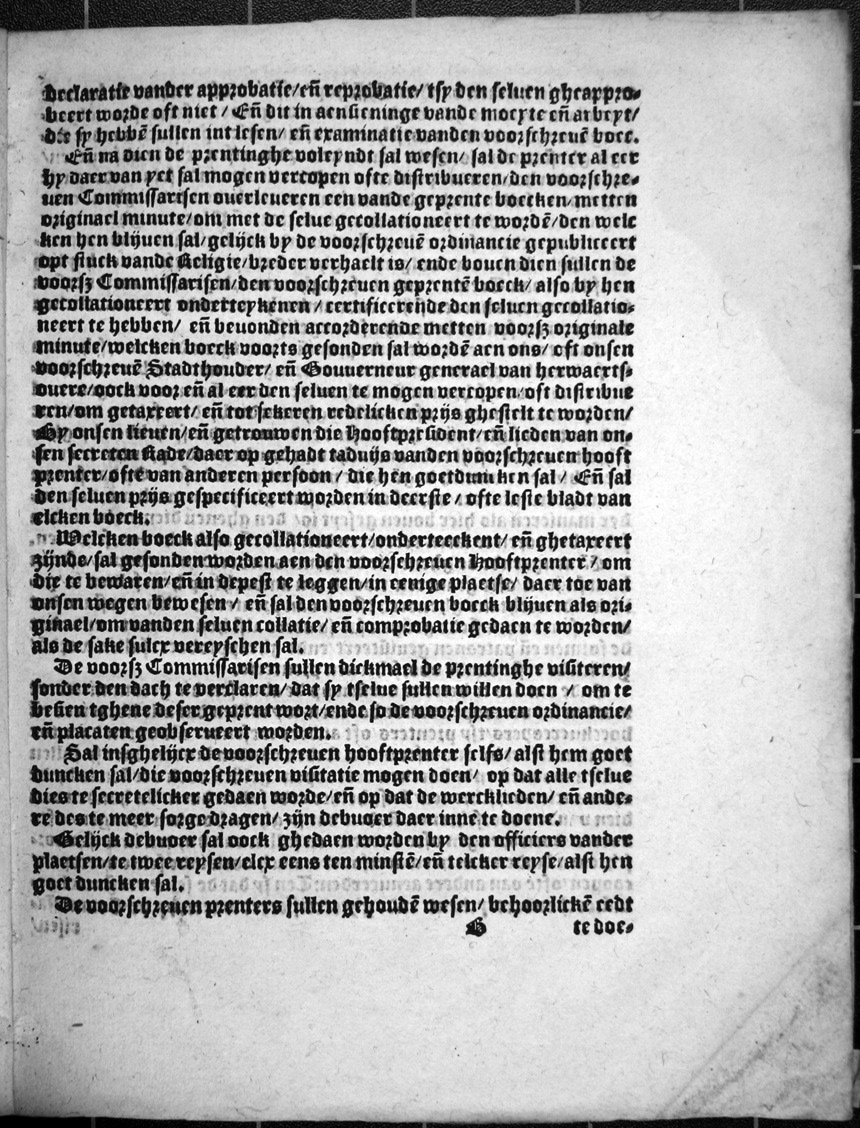 declaratie vander approbatie/eñ reprobatie/ tsy den seluen gheappro-
beert worde oft niet / Eñ dit in aensieninge vande moeyte eñ arbeyt/
die sy hebbē sullen int lesen/ eñ examinatie vanden voorschreuē boec.
Eñ na dien de prentinghe voleyndt sal wesen/ sal de prenter al eer
hy daer van yet sal mogen vercopen ofte distribueren/den voorschre-
uen Commissarisen ouerleueren een vande geprente boecken/metten
originael minute/om met de selue gecollationeert te wordē/den welc
ken hen blijuen sal/gelijck by de voorschreuē ordinancie gepubliceert
opt stuck vande Religie/breder verhaelt is/ ende bouen dien sullen de
voorsz Commissarisen/den voorschreuen geprentē boeck/ also by hen
gecollationeert onderteykenen / certificerende den seluen gecollatio-
neert te hebben/ eñ beuonden accorderende metten voorsz originale
minute/welcken boeck voorts gesonden sal wordē aen ons/ oft onsen
voorschreuē Stadthouder/ eñ Gouuerneur generael van herwaerts-
ouere/oock voor eñ al eer den seluen te mogen vercopen/oft distribue
ren/om getaxeert/ eñ tot sekeren redelicken prijs ghestelt te worden/
By onsen lieuen/eñ getrouwen die Hooftpresident/eñ lieden van on-
sen secreten Rade/daer op gehadt taduijs vanden voorschreuen hooft
prenter/ofte van anderen persoon / die hen goetduncken sal / Eñ sal
den seluen prijs gespecificeert worden in deerste / ofte leste bladt van
elcken boeck.
Welcken boeck also gecollationeert/onderteeckent/ eñ ghetaxeert
zijnde/sal gesonden worden aen den voorschreuen Hooftprenter / om
die te bewaren/eñ in depest te leggen/in eenige plaetse/ daer toe van
onsen wegen bewesen / eñ sal den voorschreuen boeck blijuen als ori-
ginael/om vanden seluen collatie/ eñ comprobatie gedaen te worden/
als de sake sulcx vereyschen sal.
De voorsz Commissarisen sullen dickmael de prentinghe visiteren/
sonder den dach te verclaren/ dat sy tselue sullen willen doen / om te
besien tghene deser geprent wort/ende so de voorschreuen ordinancie/
eñ placaten geobserueert worden.
Sal insghelijcx de voorschreuen hooftprenter selfs/alst hem goet
duncken sal/die voorschreuen visitatie mogen doen/ op dat alle tselue
dies te secretelicker gedaen worde/eñ op dat de wercklieden/ eñ ande-
re des te meer sorge dragen/ zijn debuoer daer inne te doene.
Gelijck debuoer sal oock ghedaen worden by den officiers vander
plaetsen/te twee reysen/elcx eens ten minstē/eñ telcker reyse/alst hen
goet duncken sal.
De voorschreuen prenters sullen gehoudē wesen/ behoorlickē eedt
B te doe-